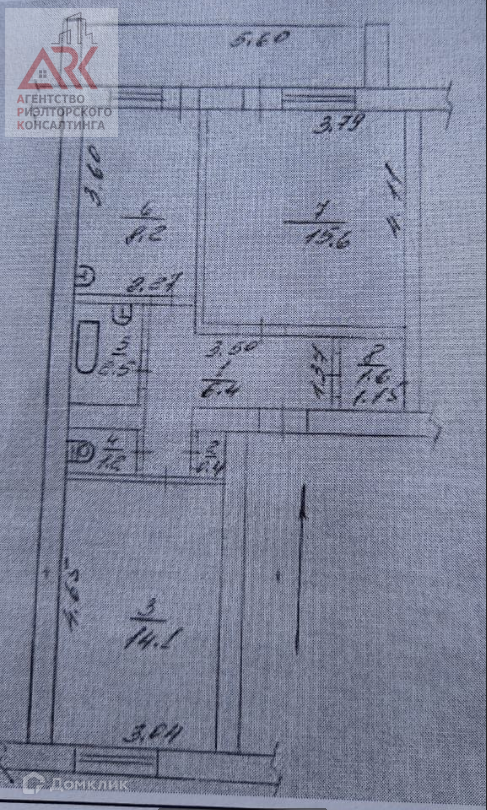 АРК
АГЕНТСТВО
РИЭЛТОРСКОГО
КОНСАЛТИНГА
5.60
3.79
3.60
4.11
6
8.2
7
15.6
2.27
5
2.5
3.50
1
6.4
1.37
8
1.6
1.15
4
1.2
2
0.4
4.65
3
14.1
3.04
Домклик